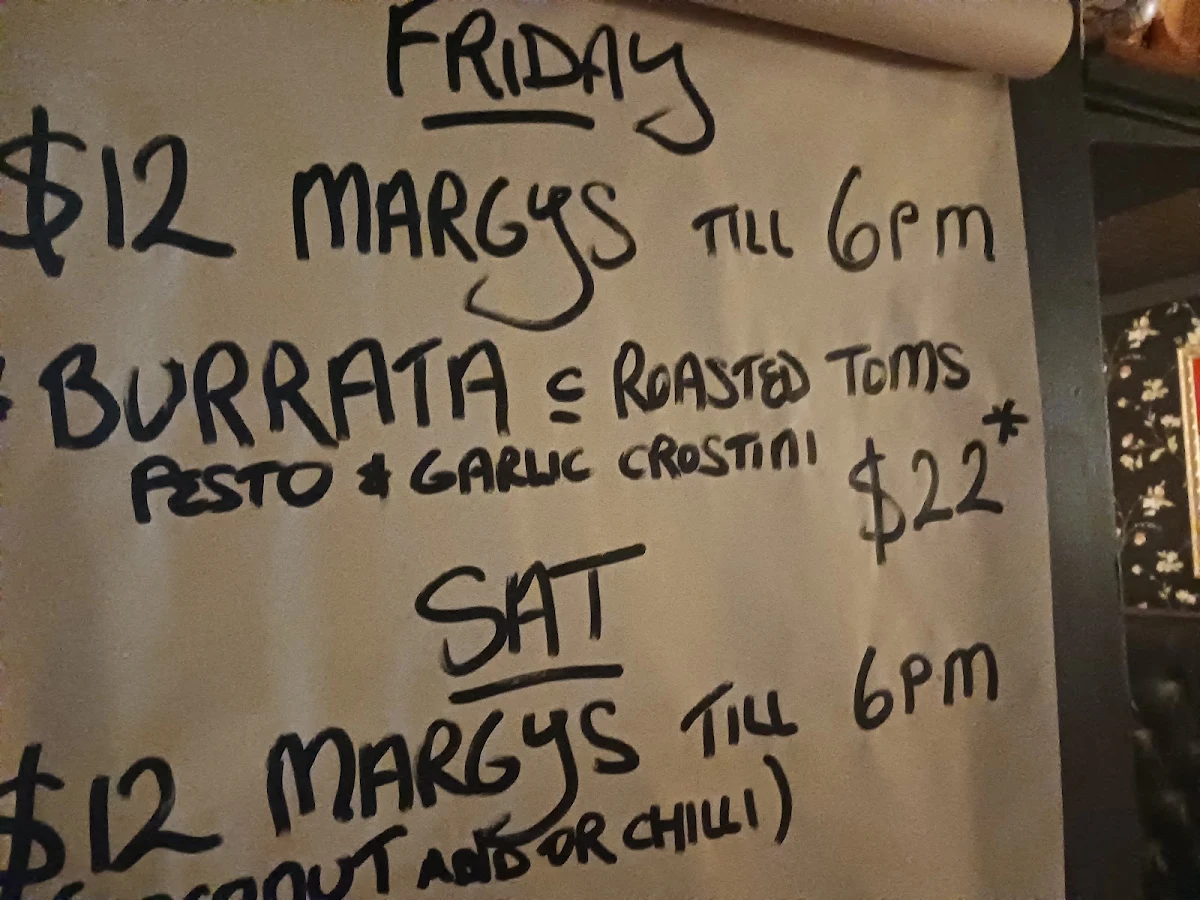 FRIDAY
$12 MARGYS TILL 6PM
BURRATA c ROASTED TOMS
PESTO & GARLIC CROSTINI $22*
SAT
$12 MARGYS TILL 6PM
AND OR CHILLI)